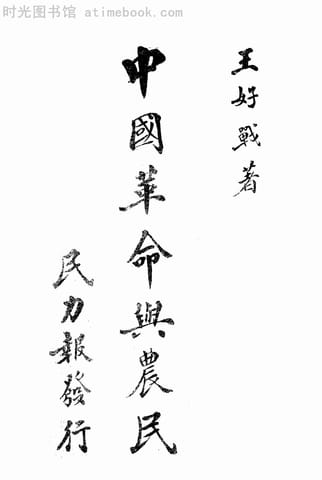 时光图书馆 atimebook.com
王好戰著
中國革命與農民
民力報發行